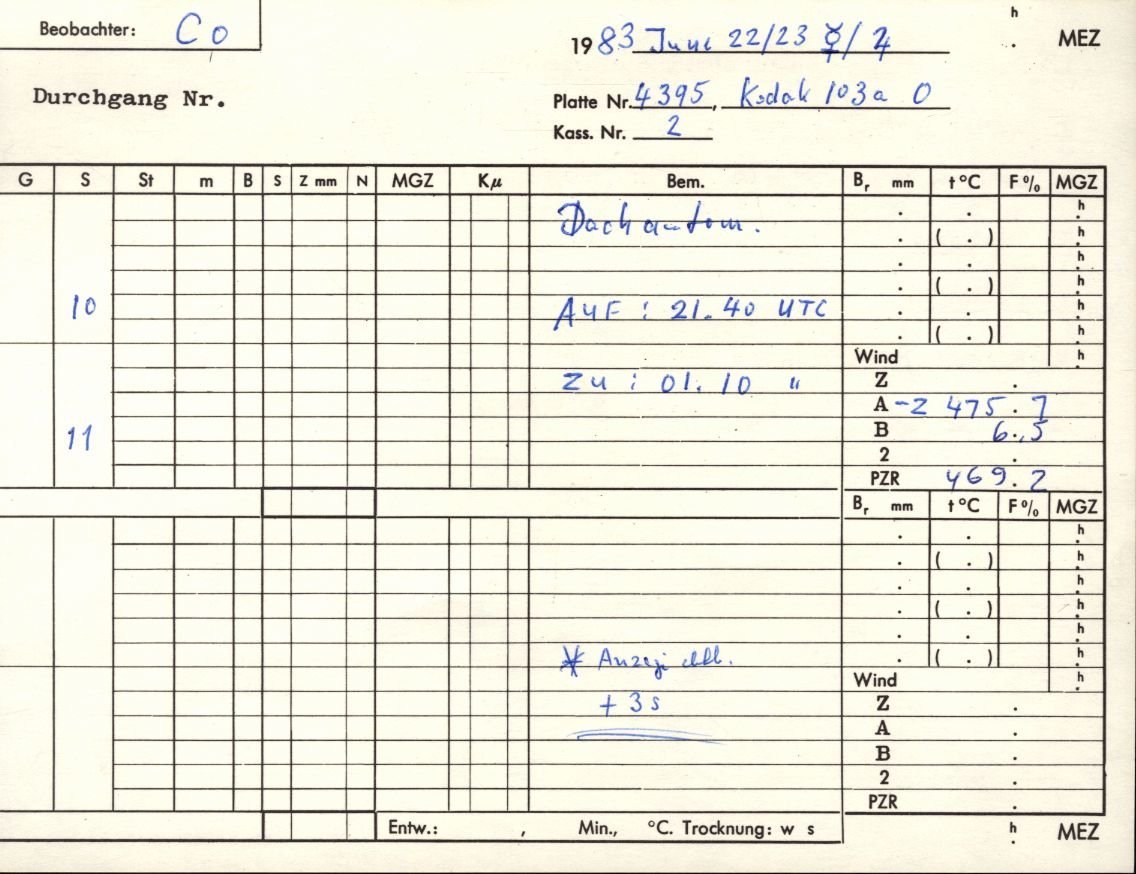 Beobachter: Co
h
1983 June 22/23 ☿/♃ . MEZ
Durchgang Nr.
Platte Nr. 4395, Kodak 103a O
Kass. Nr. 2
G S St m B S Z mm N MGZ Kμ Bem. Br mm t°C F% MGZ
. . h
Dachautom. . ( . ) h
. . h
. ( . ) h
10 Auf : 21.40 UTC . . h
. ( . ) h
Wind h
Zu : 01.10 " Z .
A -2 475.7
11 B 6.,5
2 .
PZR 469.2
Br mm t°C F% MGZ
. . h
. ( . ) h
. . h
. ( . ) h
. . h
* . ( . ) h
Wind h
+ 3s Z .
A .
B .
2 .
PZR .
Entw.: , Min., °C. Trocknung: w s h . MEZ